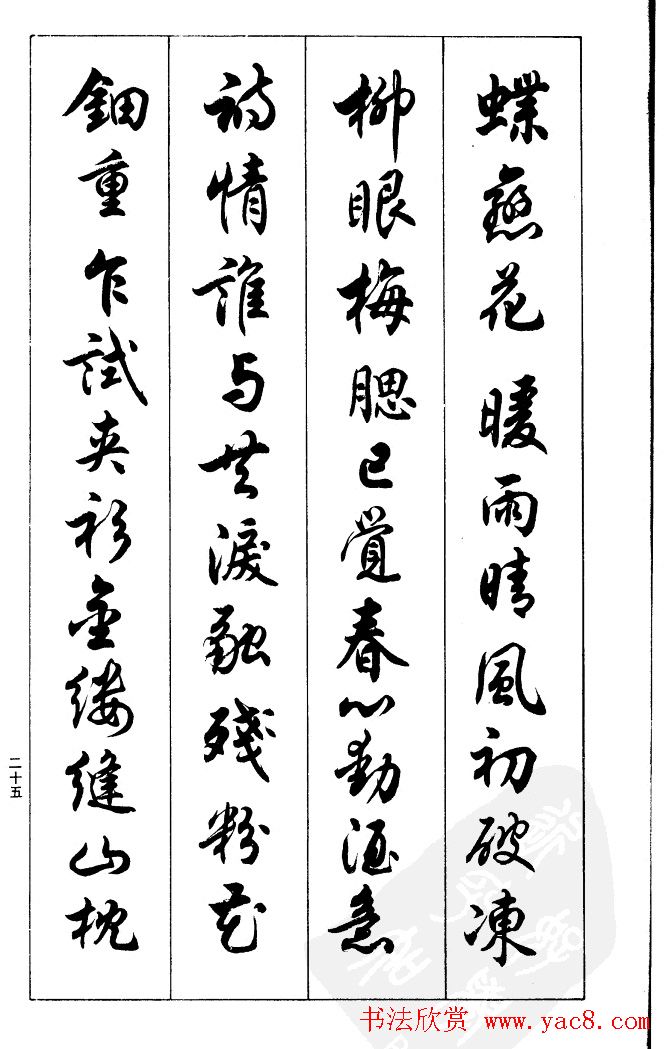 蝶戀花 暖雨晴風初破凍
柳眼梅腮已覺春心動酒意
詩情誰与共淚融殘粉花
鈿重乍試夾衫金縷縫山枕
二十五
书法欣赏 www.yac8.com